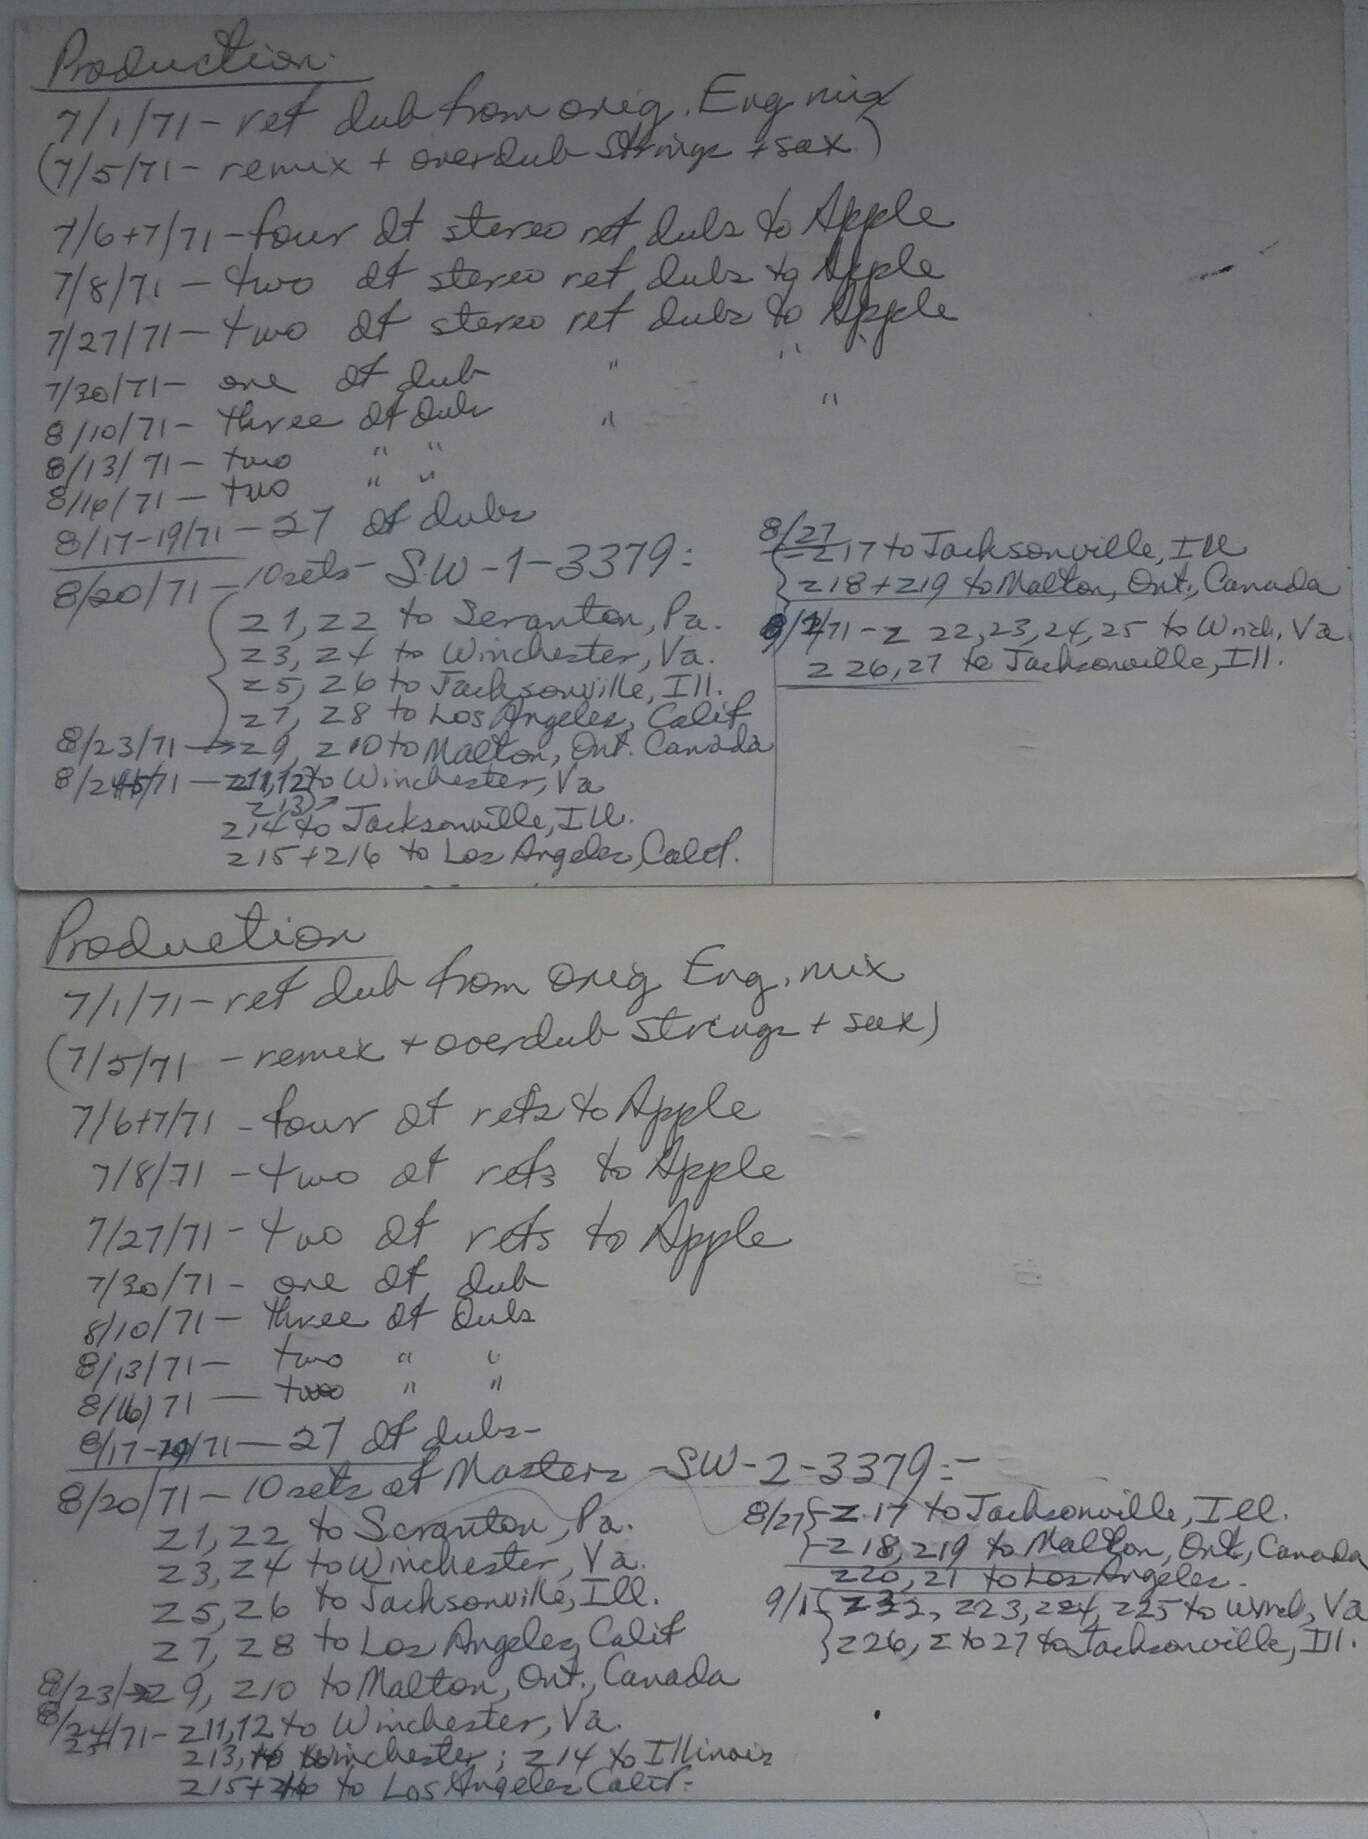 Production
7/1/71 - ref dub from orig. Eng mix
(7/5/71 - remix + overdub strings + sax)
7/6+7/71 - four at stereo ref dubs to Apple
7/8/71 - two at stereo ref dubs to Apple
7/27/71 - two at stereo ref dubs to Apple
7/30/71 - one at dub " "
8/10/71 - three at dubs " "
8/13/71 - two " "
8/16/71 - two " "
8/17-19/71 - 27 at dubs
8/20/71 - 10 sets - SW-1-3379:
z1, z2 to Scranton, Pa.
z3, z4 to Winchester, Va.
z5, z6 to Jacksonville, Ill.
z7, z8 to Los Angeles, Calif
8/23/71 → z9, z10 to Malton, Ont. Canada
8/24+5/71 - z11,12 to Winchester, Va
z13
z14 to Jacksonville, Ill.
z15+z16 to Los Angeles, Calif.
8/27
z17 to Jacksonville, Ill
z18+z19 to Malton, Ont., Canada
9/1/71 - z 22,23,24,25 to Winch, Va.
z 26,27 to Jacksonville, Ill.
Production
7/1/71 - ref dub from orig Eng. mix
(7/5/71 - remix + overdub strings + sax)
7/6+7/71 - four at refs to Apple
7/8/71 - two at refs to Apple
7/27/71 - two at refs to Apple
7/30/71 - one at dub
8/10/71 - three at dubs
8/13/71 - two " "
8/16/71 - two " "
8/17-19/71 - 27 at dubs -
8/20/71 - 10 sets of Masters - SW-2-3379:-
z1, z2 to Scranton, Pa.
z3, z4 to Winchester, Va.
z5, z6 to Jacksonville, Ill.
z7, z8 to Los Angeles, Calif
8/23/→z9, z10 to Malton, Ont., Canada
8/24/71 - z11,12 to Winchester, Va.
25
z13, to Winchester; z14 to Illinois
z15+z16 to Los Angeles Calif.
8/27 z17 to Jacksonville, Ill.
z18, z19 to Malton, Ont., Canada
z20, 21 to Los Angeles.
9/1 z22, z23, z24, z25 to Winch, Va
z26, z to 27 to Jacksonville, Ill.